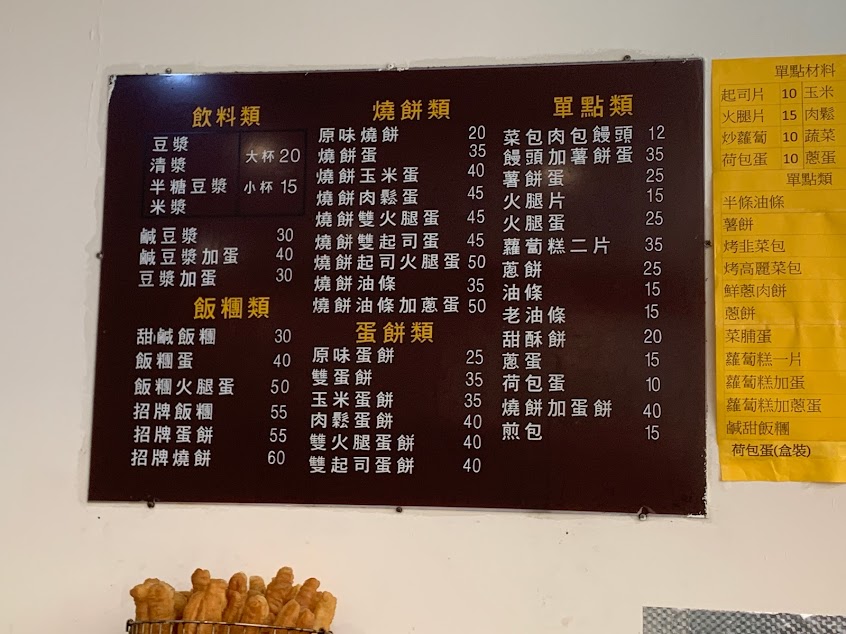 飲料類
豆漿
清漿
半糖豆漿
米漿
大杯20
小杯 15
鹹豆漿 30
鹹豆漿加蛋 40
豆漿加蛋 30
飯糰類
甜鹹飯糰 30
飯糰蛋 40
飯糰火腿蛋 50
招牌飯糰 55
招牌蛋餅 55
招牌燒餅 60
燒餅類
原味燒餅 20
燒餅蛋 35
燒餅玉米蛋 40
燒餅肉鬆蛋 45
燒餅雙火腿蛋 45
燒餅雙起司蛋 45
燒餅起司火腿蛋 50
燒餅油條 35
燒餅油條加蔥蛋 50
蛋餅類
原味蛋餅 25
雙蛋餅 35
玉米蛋餅 35
肉鬆蛋餅 40
雙火腿蛋餅 40
雙起司蛋餅 40
單點類
菜包肉包饅頭 12
饅頭加薯餅蛋 35
薯餅蛋 25
火腿片 15
火腿蛋 25
蘿蔔糕二片 35
蔥餅 25
油條 15
老油條 15
甜酥餅 20
蔥蛋 15
荷包蛋 10
燒餅加蛋餅 40
煎包 15
單點材料
起司片 10 玉米
火腿片 15 肉鬆
炒蘿蔔 10 蔬菜
荷包蛋 10 蔥蛋
單點類
半條油條
薯餅
烤韭菜包
烤高麗菜包
鮮蔥肉餅
蔥餅
菜脯蛋
蘿蔔糕一片
蘿蔔糕加蛋
蘿蔔糕加蔥蛋
鹹甜飯糰
荷包蛋(盒裝)